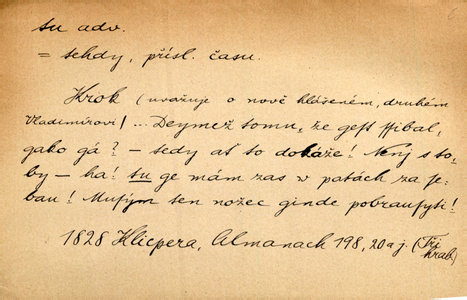 tu adv.
= tehdy, přísl. času.
Krok (uvažuje o nově hlášeném, druhém
Vladimírovi) ... Deymež tomu, že gest ssibal,
gako gá? – tedy ať to dokáže! Neníj s to,
by – ha! tu ge mám zas w patách za se-
bau! Musým ten nožec ginde pobrausyti!
1828 Klicpera, Almanach 198, 20 a j. (Tři
hrab.)